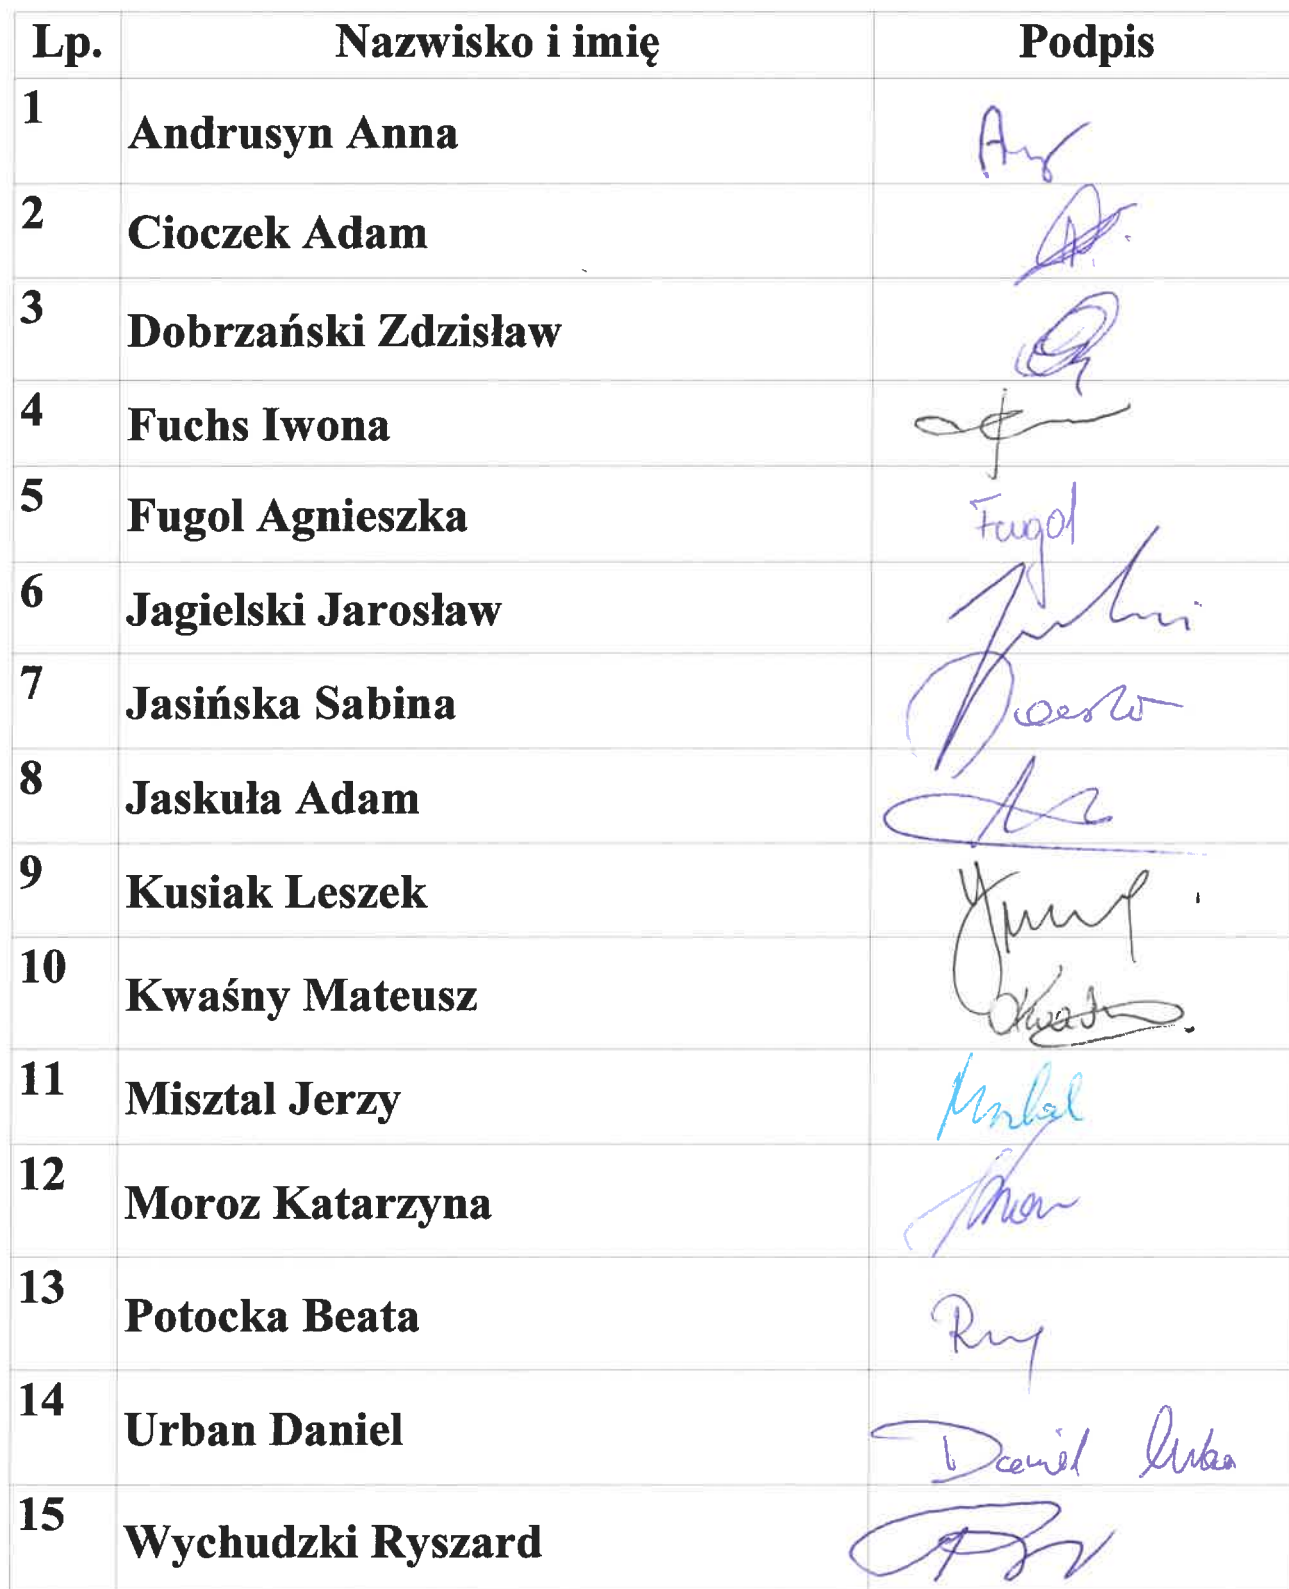 Lp. Nazwisko i imię Podpis
1 Andrusyn Anna
2 Cioczek Adam
3 Dobrzański Zdzisław
4 Fuchs Iwona
5 Fugol Agnieszka Fugol
6 Jagielski Jarosław
7 Jasińska Sabina
8 Jaskuła Adam
9 Kusiak Leszek
10 Kwaśny Mateusz
11 Misztal Jerzy
12 Moroz Katarzyna
13 Potocka Beata
14 Urban Daniel Daniel Urban
15 Wychudzki Ryszard